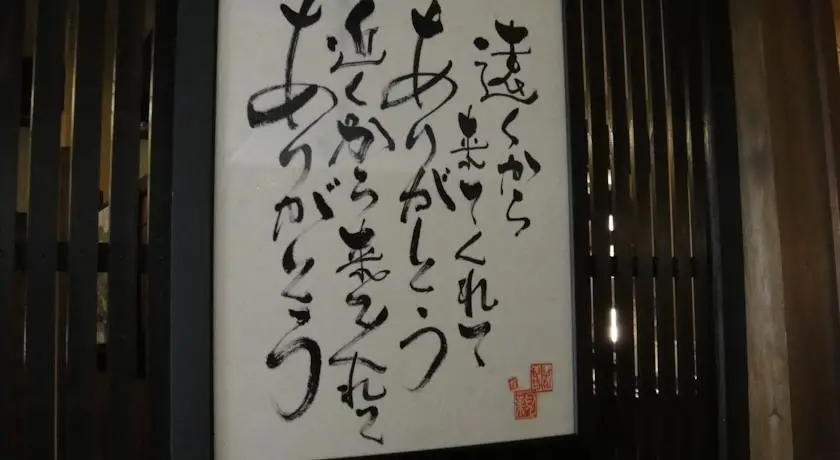 遠くから
来てくれて
ありがとう
近くから来てくれて
ありがとう